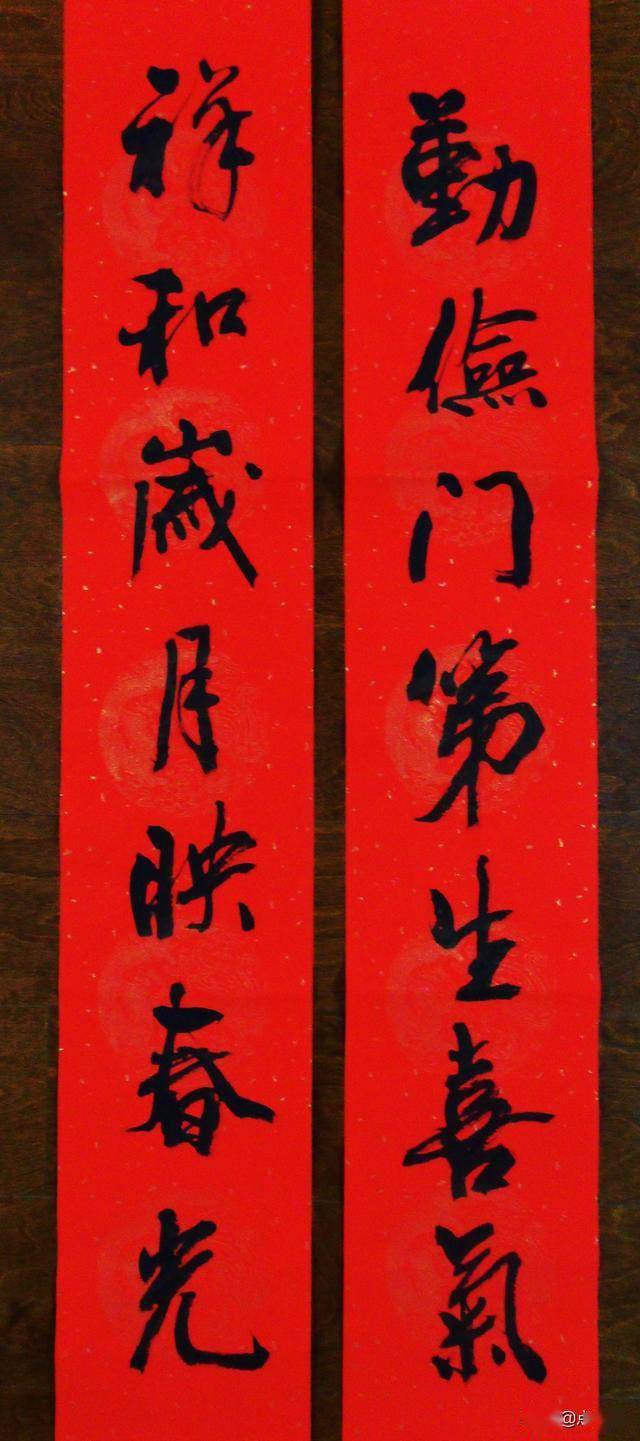 勤儉门第生喜氣
祥和歲月映春光